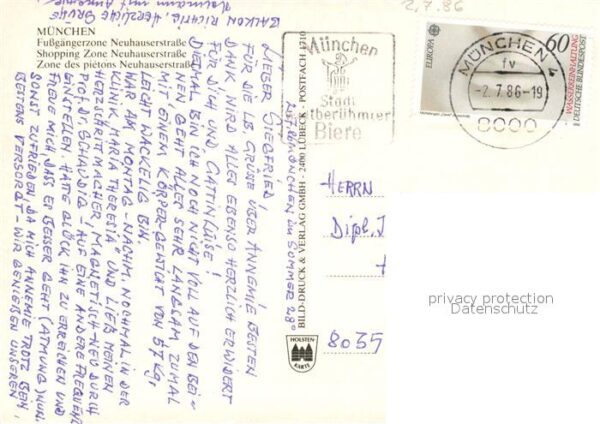 2.7.86
BALKON RICHTIG. HERZLICHE GRÜßE
MÜNCHEN
Fußgängerzone Neuhauserstraße
Shopping Zone Neuhauserstraße
Zone des piétons Neuhauserstraße
MÜNCHEN IM SOMMER
LIEBER SIEGFRIED,
FÜR DIE LB. GRÜSSE ÜBER ANNEMIE BESTEN
DANK WIRD ALLES EBENSO HERZLICH ERWIDERT
FÜR DICH UND GATTIN
DIESMAL BIN ICH NOCH NICHT VOLL AUF DEN BEI-
NEN GEHT ALLES SEHR LANGSAM ZUMAL
MIT EINEM KÖRPER-GEWICHT VON 57 Kgr
LEICHT WACKELIG BIN.
WAR AM MONTAG-NACHM. NOCHMAL IN DER
KLINIK MARIA THERESIA UND LIEß MEINEN
HERZSCHRITTMACHER, MAGNETISCH-NEU DURCH
Prof. Dr. SCHAUDIG - AUF EINE ANDERE FREQUENZ
EINSTELLEN. HATTE GLÜCK IHN ZU ERREICHEN UND
FREUE MICH DASS ES BESSER GEHT (ATMUNG) NUN.
SONST ZUFRIEDEN, DA MICH ANNEMIE TROTZ BEIN
BESTENS VERSORGT - WIR GENIEßEN UNSEREN
BILD-DRUCK & VERLAG GMBH - 2400 LÜBECK - POSTFACH 1710
HOLSTEN
KARTE
München
Stadt
weltberühmter
Biere
MÜNCHEN 4
fv
-2.7.86-19
8000
EUROPA
60
WASSERREINHALTUNG
DEUTSCHE BUNDESPOST
HERRN
Dipl. I
8035
privacy protection
Datenschutz